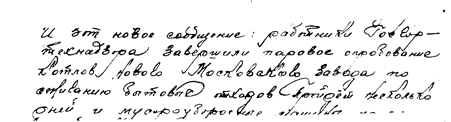 И вот новое сообщение: работники Гостор-
технадзора завершили паровое опробование
котлов нового Московского завода по
сжиганию бытовых отходов. Пройдет несколько
дней и мусороуборочные машины